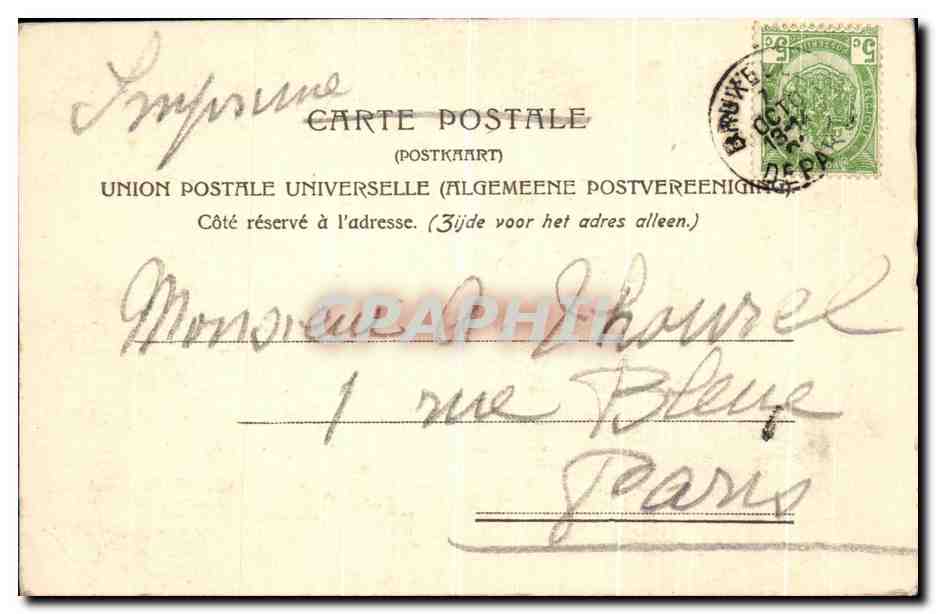 Imprimé
5 c 5 c
CARTE POSTALE
(POSTKAART)
UNION POSTALE UNIVERSELLE (ALGEMEENE POSTVEREENIGING)
Côté réservé à l'adresse. (Zijde voor het adres alleen.)
DEPART
CPAPHIL
Monsieur
1 rue Bleue
Paris